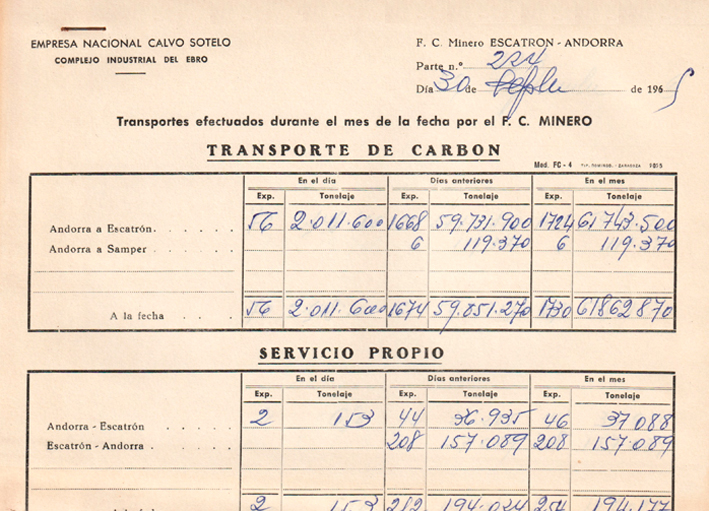 EMPRESA NACIONAL CALVO SOTELO
COMPLEJO INDUSTRIAL DEL EBRO
F. C. Minero ESCATRON - ANDORRA
Parte n.º 224
Día 30 de de 1965
Transportes efectuados durante el mes de la fecha por el F. C. MINERO
TRANSPORTE DE CARBON
Mod. FC - 4
En el día Días anteriores En el mes
Exp. Tonelaje Exp. Tonelaje Exp. Tonelaje
Andorra a Escatrón 56 2.011.600 1668 59.731.900 1724 61743.500
Andorra a Samper 6 119.370 6 119.370
A la fecha 56 2.011.600 1674 59.851.270 1730 61862870
SERVICIO PROPIO
En el día Días anteriores En el mes
Exp. Tonelaje Exp. Tonelaje Exp. Tonelaje
Andorra - Escatrón 2 153 44 36.935 46 37088
Escatrón - Andorra 208 157.089 208 157.089
2 153 252 194.024 254 194.177